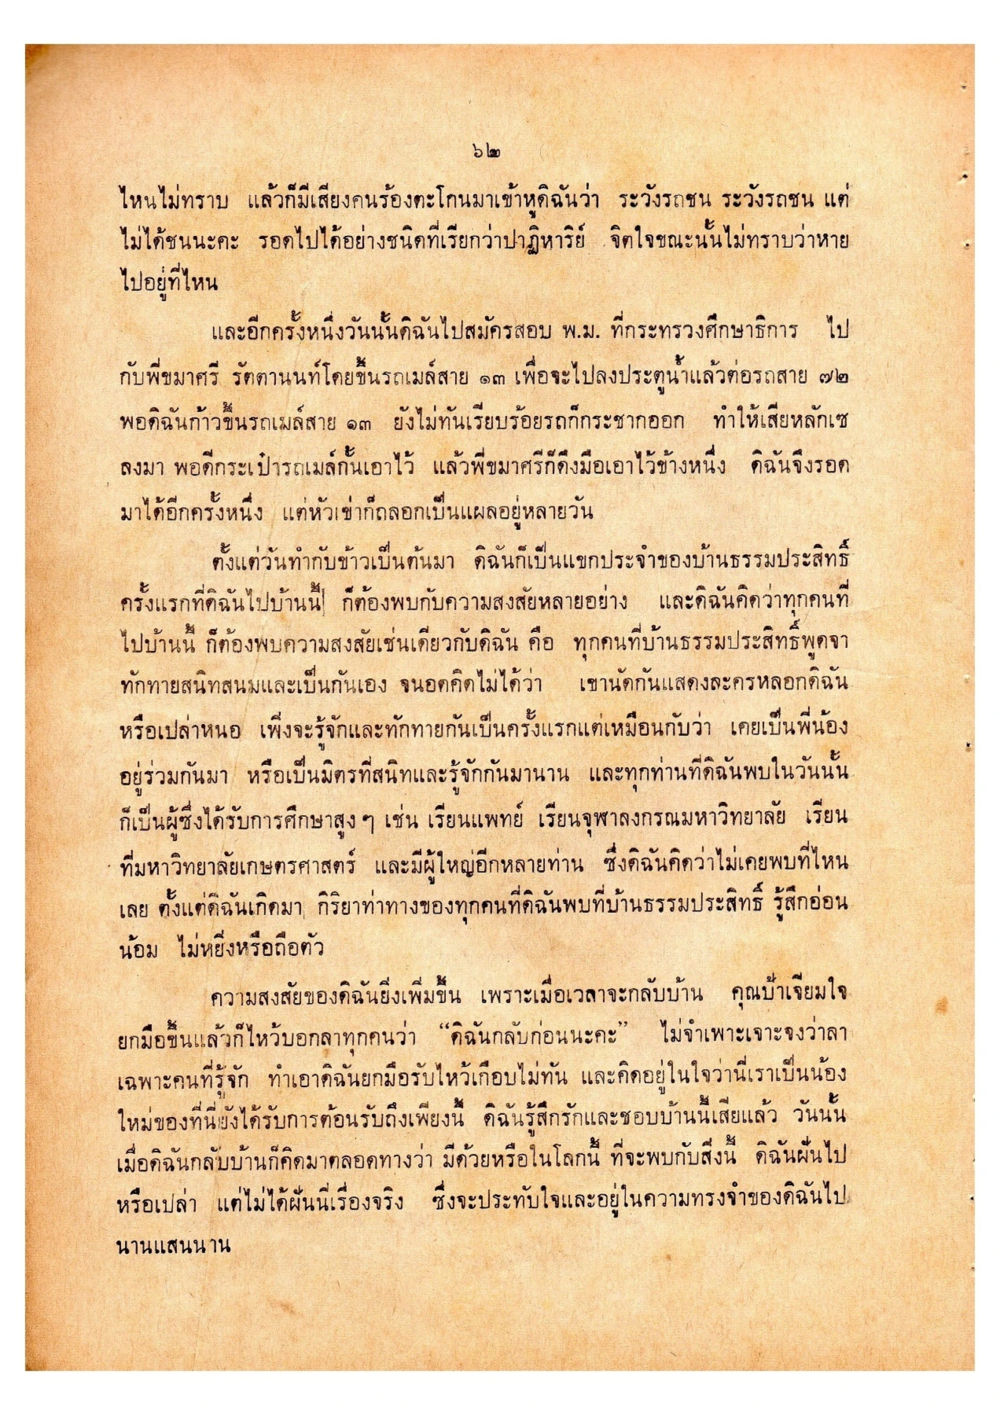 ๖๒
ไหนไม่ทราบ แล้วก็มีเสียงคนร้องตะโกนมาเข้าหูดิฉันว่า ระวังรถชน ระวังรถชน แต่
ไม่ได้ชนนะคะ รอดไปได้อย่างชนิดที่เรียกว่าปาฏิหาริย์ จิตใจขณะนั้นไม่ทราบว่าหาย
ไปอยู่ที่ไหน
และอีกครั้งหนึ่งวันนั้นดิฉันไปสมัครสอบ พ.ม. ที่กระทรวงศึกษาธิการ ไป
กับพี่ขมาศรี รัตตานนท์โดยขึ้นรถเมล์สาย ๑๓ เพื่อจะไปลงประตูน้ำแล้วต่อรถสาย ๗๒
พอดิฉันก้าวขึ้นรถเมล์สาย ๑๓ ยังไม่ทันเรียบร้อยรถก็กระชากออก ทำให้เสียหลักเซ
ลงมา พอดีกระเป๋ารถเมล์กั้นเอาไว้ แล้วพี่ขมาศรีก็ดึงมือเอาไว้ข้างหนึ่ง ดิฉันจึงรอด
มาได้อีกครั้งหนึ่ง แต่หัวเข่าก็ถลอกเป็นแผลอยู่หลายวัน
ตั้งแต่วันทำกับข้าวเป็นต้นมา ดิฉันก็เป็นแขกประจำของบ้านธรรมประสิทธิ์
ครั้งแรกที่ดิฉันไปบ้านนี้ ก็ต้องพบกับความสงสัยหลายอย่าง และดิฉันคิดว่าทุกคนที่
ไปบ้านนี้ ก็ต้องพบความสงสัยเช่นเดียวกับดิฉัน คือ ทุกคนที่บ้านธรรมประสิทธิ์พูดจา
ทักทายสนิทสนมและเป็นกันเอง จนอดคิดไม่ได้ว่า เขานัดกันแสดงละครหลอกดิฉัน
หรือเปล่าหนอ เพิ่งจะรู้จักและทักทายกันเป็นครั้งแรกแต่เหมือนกับว่า เคยเป็นพี่น้อง
อยู่ร่วมกันมา หรือเป็นมิตรที่สนิทและรู้จักกันมานาน และทุกท่านที่ดิฉันพบในวันนั้น
ก็เป็นผู้ซึ่งได้รับการศึกษาสูง ๆ เช่น เรียนแพทย์ เรียนจุฬาลงกรณมหาวิทยาลัย เรียน
ที่มหาวิทยาลัยเกษตรศาสตร์ และมีผู้ใหญ่อีกหลายท่าน ซึ่งดิฉันคิดว่าไม่เคยพบที่ไหน
เลย ตั้งแต่ดิฉันเกิดมา กิริยาท่าทางของทุกคนที่ดิฉันพบที่บ้านธรรมประสิทธิ์ รู้สึกอ่อน
น้อม ไม่หยิ่งหรือถือตัว
ความสงสัยของดิฉันยิ่งเพิ่มขึ้น เพราะเมื่อเวลาจะกลับบ้าน คุณป้าเจียมใจ
ยกมือขึ้นแล้วก็ไหว้บอกลาทุกคนว่า “ดิฉันกลับก่อนนะคะ” ไม่จำเพาะเจาะจงว่าลา
เฉพาะคนที่รู้จัก ทำเอาดิฉันยกมือรับไหว้เกือบไม่ทัน และคิดอยู่ในใจว่านี่เราเป็นน้อง
ใหม่ของที่นี่ยังได้รับการต้อนรับถึงเพียงนี้ ดิฉันรู้สึกรักและชอบบ้านนี้เสียแล้ว วันนั้น
เมื่อดิฉันกลับบ้านก็คิดมาตลอดทางว่า มีด้วยหรือในโลกนี้ ที่จะพบกับสิ่งนี้ ดิฉันฝันไป
หรือเปล่า แต่ไม่ได้ฝันนี่เรื่องจริง ซึ่งจะประทับใจและอยู่ในความทรงจำของดิฉันไป
นานแสนนาน